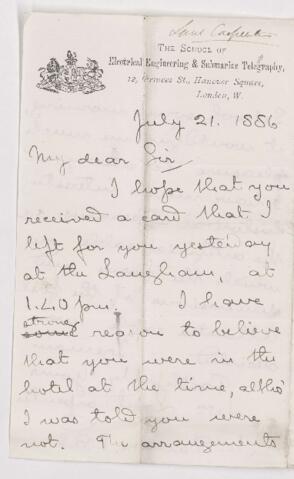 THE SCHOOL OF
Electrical Engineering & Submarine Telegraphy,
12, Princes St., Hanover Square,
London, W.
July 21. 1886
My dear Sir
I hope that you
received a card that I
left for you yesterday
at the Langham, at
1.40 pm. I have
strong
some reason to believe
that you were in the
hotel at the time, altho'
I was told you were
not. The arrangements